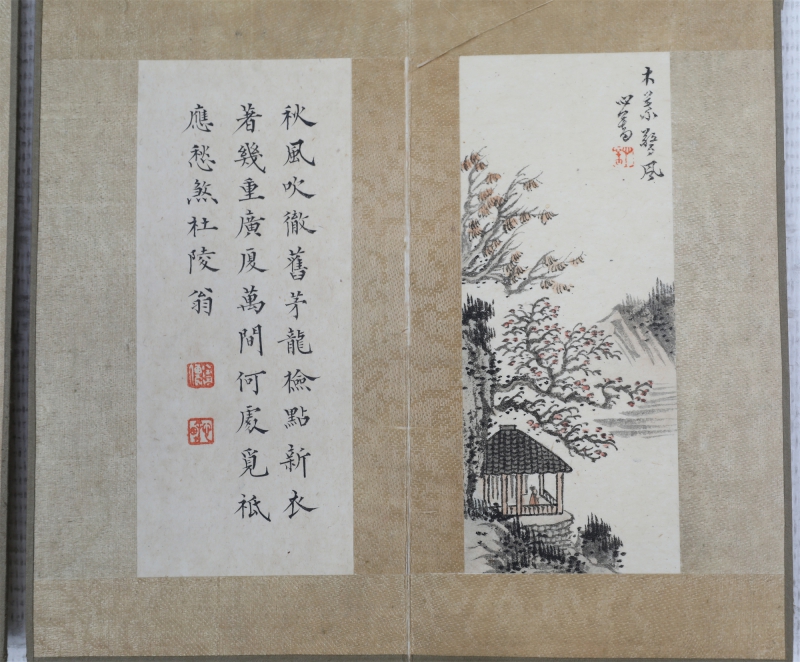 木葉驚風
心畬
秋風吹徹舊茅龍檢點新衣
著幾重廣厦萬間何處覓祗
應愁煞杜陵翁
溥儒